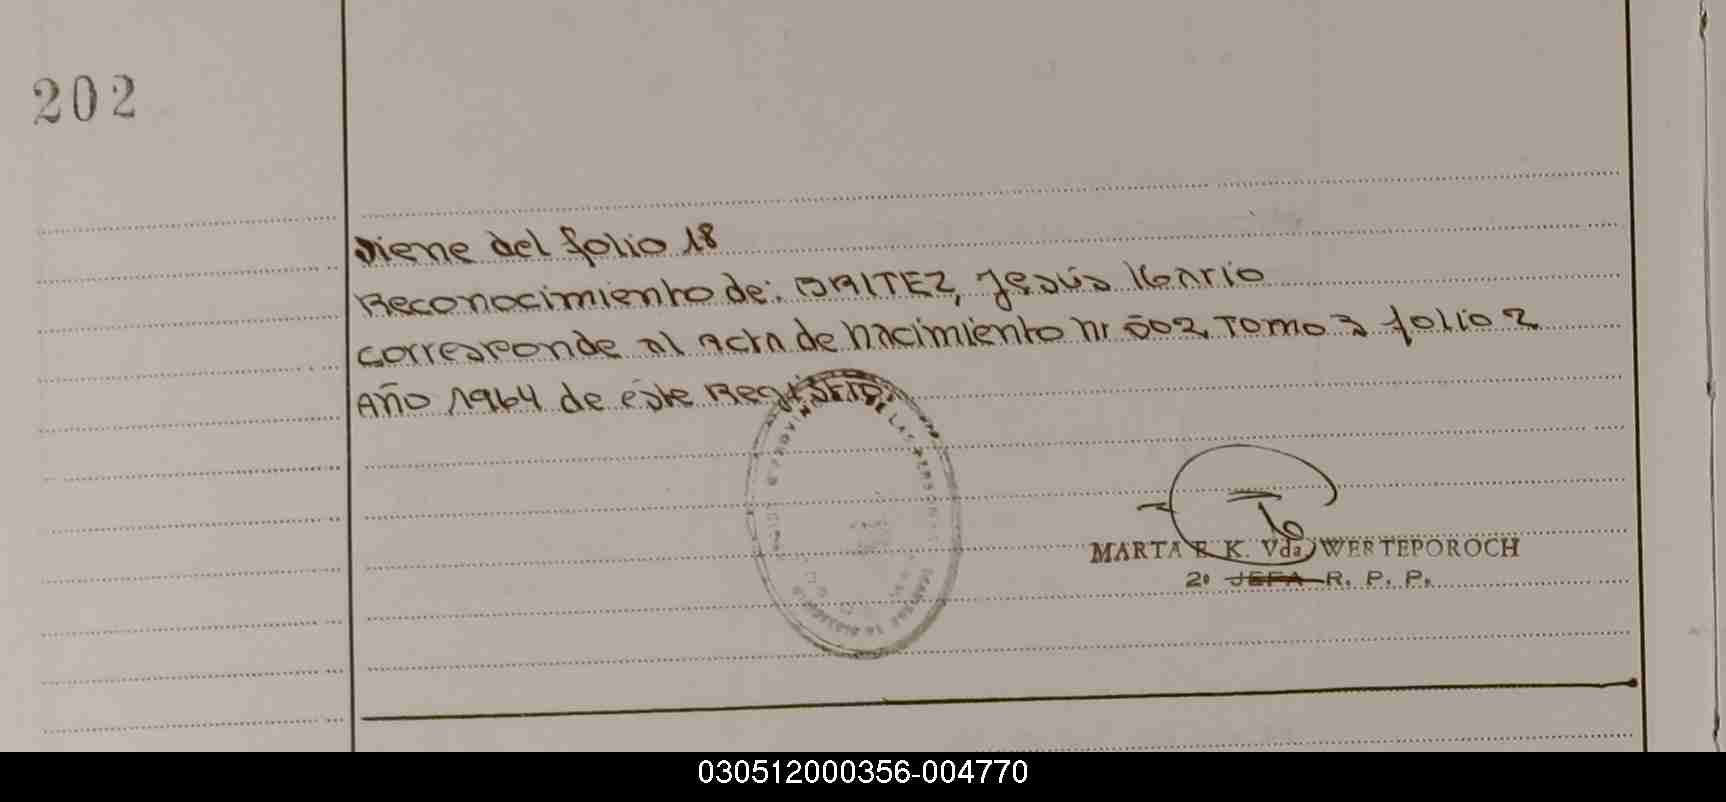 202
Viene del folio 18
Reconocimiento de: BRITEZ, Jesús Mario
corresponde al acta de nacimiento nr 502 Tomo 3 folio 2
Año 1964 de este Registro.
PROVIN DE LAS PERSON
MARTA E. K. Vda. WERTEPOROCH
2º JEFA R. P. P.
030512000356-004770